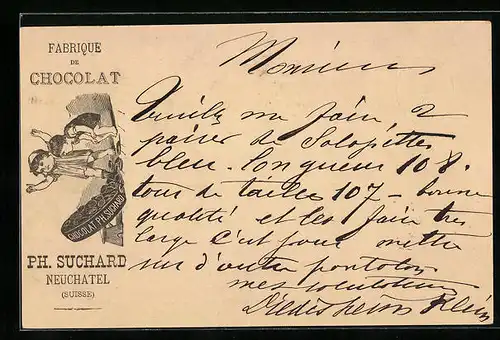 FABRIQUE
DE
CHOCOLAT
CHOCOLAT PH. SUCHARD
PH. SUCHARD
NEUCHATEL
(SUISSE)
Monsieur
Veuillez me faire 2
paires de Salopettes
bleu. longueur 108.
tour de tailles 107 – bonne
qualité et les faire très
large c'est pour mettre
sur d'autre pantalon
mes salutations
Dieldisheim Klein